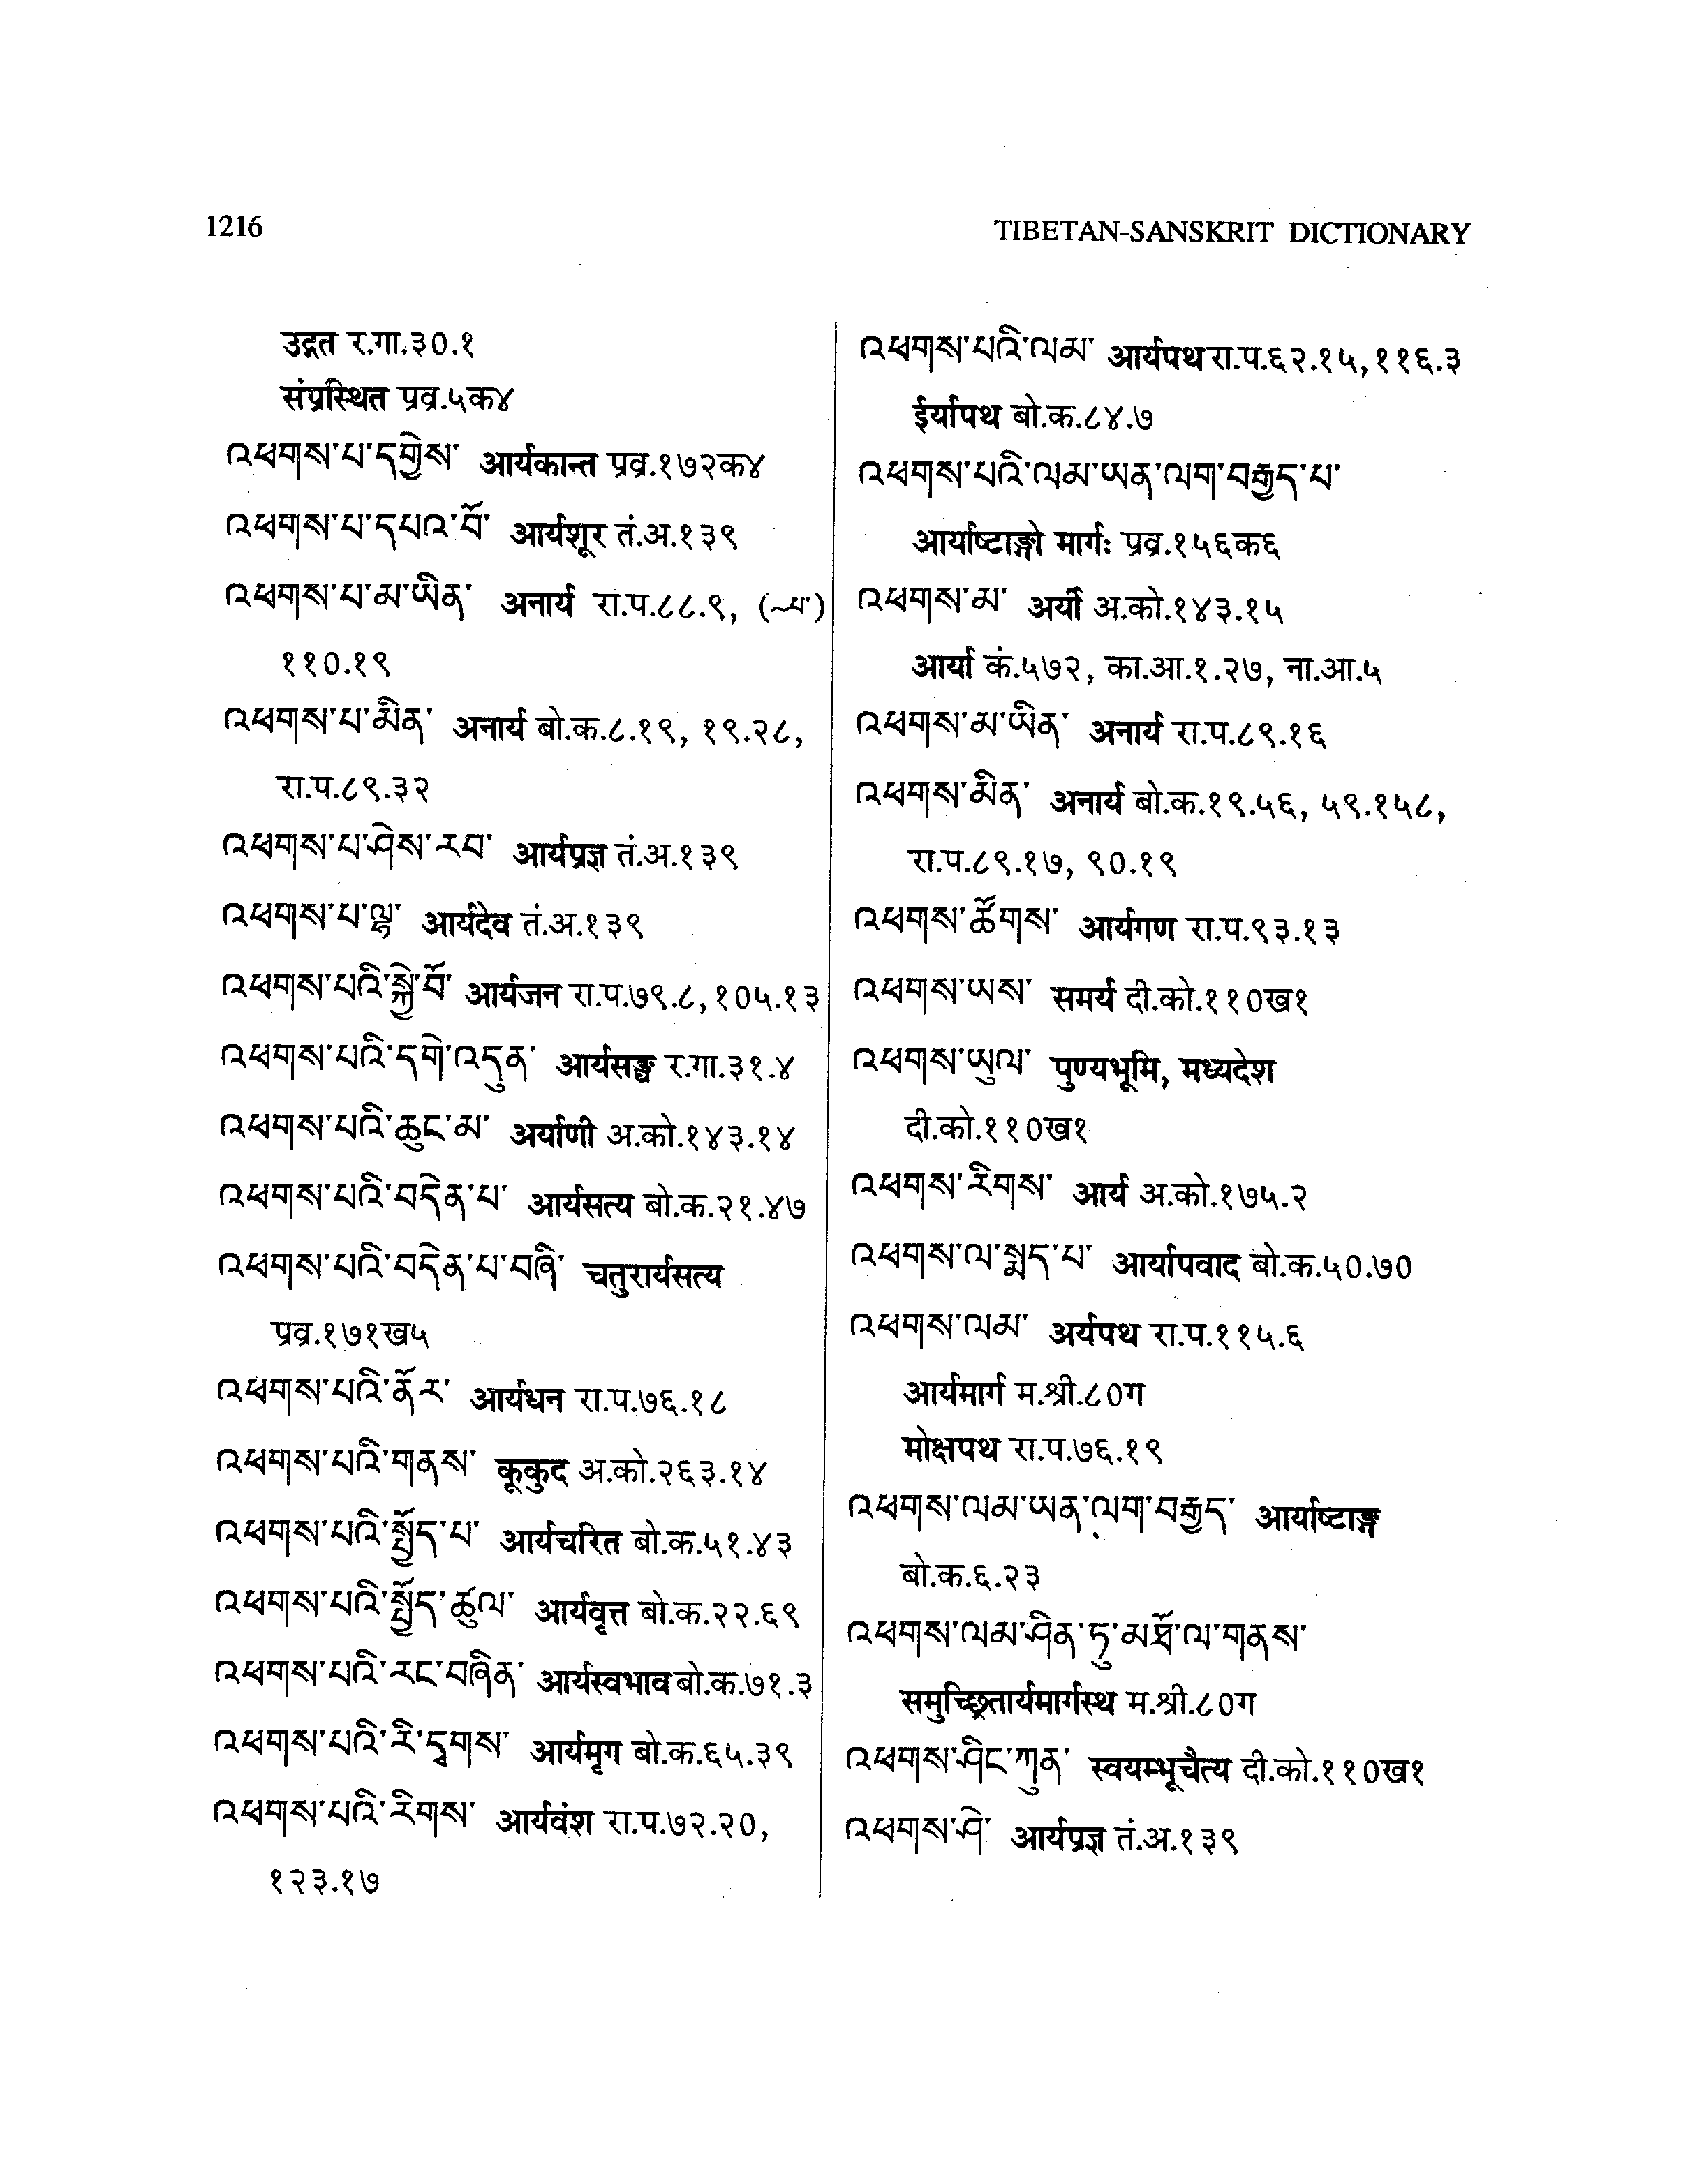 1216
TIBETAN-SANSKRIT DICTIONARY
उद्गत र.गा.३०.१
संप्रस्थित प्रव्र.५क४
འཕགས་པ་དགྱེས་ आर्यकान्त प्रव्र.१७२क४
འཕགས་པ་དཔའ་བོ་ आर्यशूर तं.अ.१३९
འཕགས་པ་མ་ཡིན་ अनार्य रा.प.८८.९, (~པ་)
११०.१९
འཕགས་པ་མིན་ अनार्य बो.क.८.१९, १९.२८,
रा.प.८९.३२
འཕགས་པ་ཤེས་རབ་ आर्यप्रज्ञ तं.अ.१३९
འཕགས་པ་ལྷ་ आर्यदेव तं.अ.१३९
འཕགས་པའི་སྐྱེ་བོ་ आर्यजन रा.प.७९.८, १०५.१३
འཕགས་པའི་དགེ་འདུན་ आर्यसङ्घ र.गा.३१.४
འཕགས་པའི་ཆུང་མ་ अर्याणी अ.को.१४३.१४
འཕགས་པའི་བདེན་པ་ आर्यसत्य बो.क.२१.४७
འཕགས་པའི་བདེན་པ་བཞི་ चतुरार्यसत्य
प्रव्र.१७१ख५
འཕགས་པའི་ནོར་ आर्यधन रा.प.७६.१८
འཕགས་པའི་གནས་ कूकुद अ.को.२६३.१४
འཕགས་པའི་སྤྱོད་པ་ आर्यचरित बो.क.५१.४३
འཕགས་པའི་སྤྱོད་ཚུལ་ आर्यवृत्त बो.क.२२.६९
འཕགས་པའི་རང་བཞིན་ आर्यस्वभाव बो.क.७१.३
འཕགས་པའི་རི་དྭགས་ आर्यमृग बो.क.६५.३९
འཕགས་པའི་རིགས་ आर्यवंश रा.प.७२.२०,
१२३.१७
འཕགས་པའི་ལམ་ आर्यपथ रा.प.६२.१५, ११६.३
ईर्यापथ बो.क.८४.७
འཕགས་པའི་ལམ་ཡན་ལག་བརྒྱད་པ་
आर्याष्टाङ्गो मार्गः प्रव्र.१५६क६
འཕགས་མ་ अर्यी अ.को.१४३.१५
आर्या कं.५७२, का.आ.१.२७, ना.आ.५
འཕགས་མ་ཡིན་ अनार्य रा.प.८९.१६
འཕགས་མིན་ अनार्य बो.क.१९.५६, ५९.१५८,
रा.प.८९.१७, ९०.१९
འཕགས་ཚོགས་ आर्यगण रा.प.९३.१३
འཕགས་ཡས་ समर्य दी.को.११०ख१
འཕགས་ཡུལ་ पुण्यभूमि, मध्यदेश
दी.को.११०ख१
འཕགས་རིགས་ आर्य अ.को.१७५.२
འཕགས་ལ་སྨད་པ་ आर्यापवाद बो.क.५०.७०
འཕགས་ལམ་ अर्यपथ रा.प.११५.६
आर्यमार्ग म.श्री.८०ग
मोक्षपथ रा.प.७६.१९
འཕགས་ལམ་ཡན་ལག་བརྒྱད་ आर्याष्टाङ्ग
बो.क.६.२३
འཕགས་ལམ་ཤིན་ཏུ་མཐོ་ལ་གནས་
समुच्छ्रितार्यमार्गस्थ म.श्री.८०ग
འཕགས་ཤིང་ཀུན་ स्वयम्भूचैत्य दी.को.११०ख१
འཕགས་ཤེ་ आर्यप्रज्ञ तं.अ.१३९